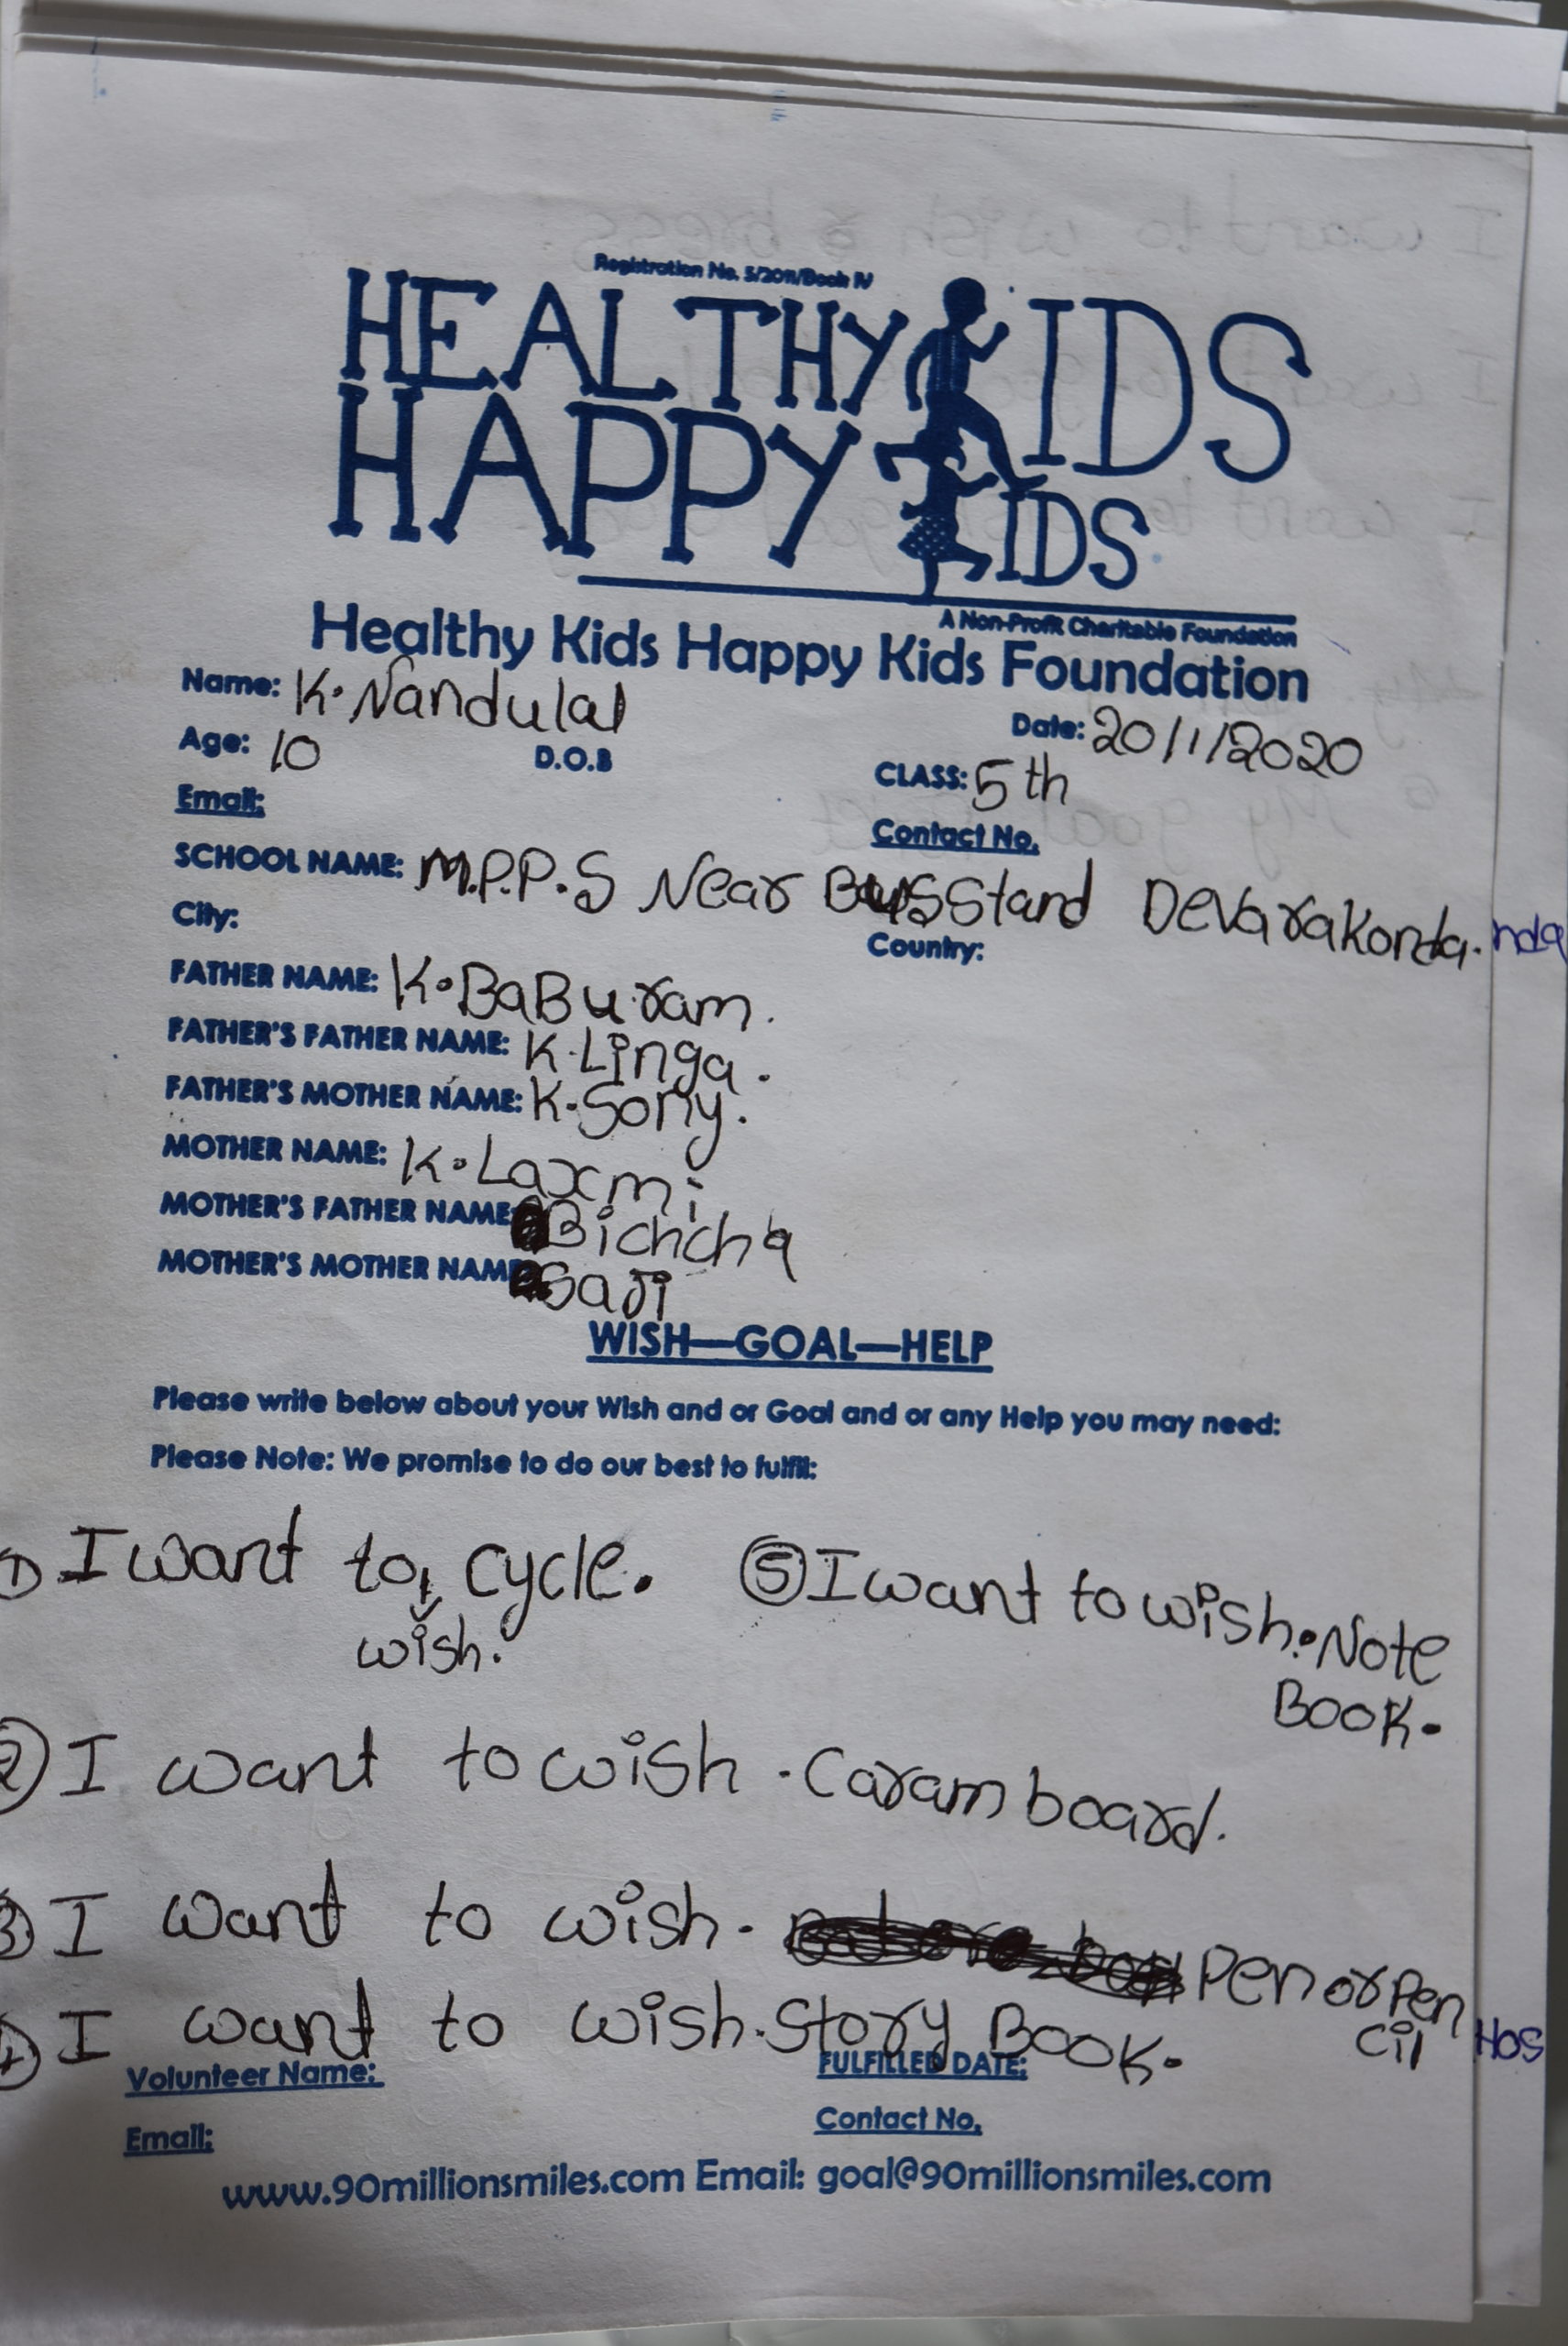 Registration No. 5/2011/Book IV
HEALTHY KIDS
HAPPY KIDS
A Non-Profit Charitable Foundation
Healthy Kids Happy Kids Foundation
Name: K. Nandulal
Date: 20/1/2020
Age: 10 D.O.B
CLASS: 5th
Email:
Contact No.
SCHOOL NAME: M.P.P.S Near BusStand Devarakonda. nda
City:
Country:
FATHER NAME: K. BaBuram.
FATHER'S FATHER NAME: K. Linga.
FATHER'S MOTHER NAME: K. Sony.
MOTHER NAME: K. Laxmi
MOTHER'S FATHER NAME: Bichcha
MOTHER'S MOTHER NAME: Gaji
WISH—GOAL—HELP
Please write below about your Wish and or Goal and or any Help you may need:
Please Note: We promise to do our best to fulfil:
1) I want to cycle.
wish.
5 I want to wish. Note
Book.
2) I want to wish. Caram board.
3) I want to wish. Pen or Pen
cil
4) I want to wish. Story Book.
Hos
Volunteer Name:
FULFILLED DATE:
Email:
Contact No.
www.90millionsmiles.com Email: goal@90millionsmiles.com